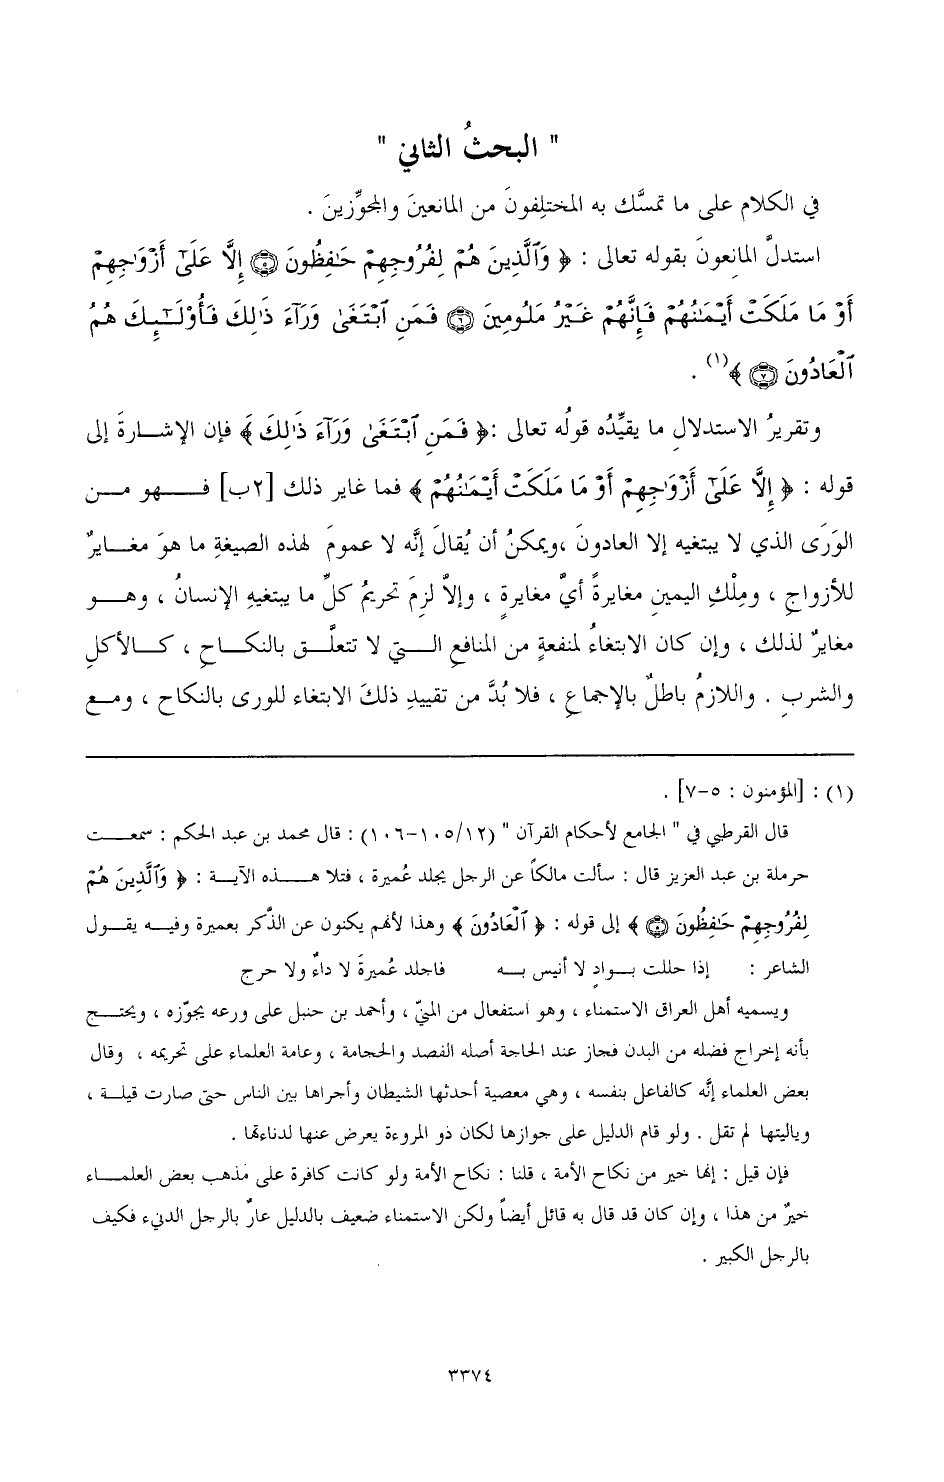 " البحثُ الثاني "
في الكلام على ما تمسَّك به المختلِفونَ من المانعينَ والمجوِّزينَ .
استدلَّ المانِعونَ بقوله تعالى : ﴿ وَٱلَّذِينَ هُمْ لِفُرُوجِهِمْ حَـٰفِظُونَ ۝٥ إِلَّا عَلَىٰٓ أَزْوَٰجِهِمْ
أَوْ مَا مَلَكَتْ أَيْمَـٰنُهُمْ فَإِنَّهُمْ غَيْرُ مَلُومِينَ ۝٦ فَمَنِ ٱبْتَغَىٰ وَرَآءَ ذَٰلِكَ فَأُوْلَـٰٓئِكَ هُمُ
ٱلْعَادُونَ ۝٧ ﴾(١) .
وتقريرُ الاستدلالِ ما يقيِّدُه قولُه تعالى :﴿ فَمَنِ ٱبْتَغَىٰ وَرَآءَ ذَٰلِكَ ﴾ فإن الإشارةَ إلى
قوله : ﴿ إِلَّا عَلَىٰٓ أَزْوَٰجِهِمْ أَوْ مَا مَلَكَتْ أَيْمَـٰنُهُمْ ﴾ فما غاير ذلك [٢ب] فهو من
الوَرَى الذي لا يبتغيه إلا العادونَ ،ويمكنُ أن يُقالَ إنَّه لا عمومَ لهذه الصيغةِ ما هوَ مغايرٌ
للأزواجِ ، ومِلْكِ اليمينِ مغايرةً أيَّ مغايرةٍ ، وإلاَّ لزِمَ تحريمُ كلِّ ما يبتغيهِ الإنسانُ ، وهو
مغايرٌ لذلك ، وإن كان الابتغاءُ لمنفعةٍ من المنافعِ التي لا تتعلَّق بالنكاحِ ، كالأكلِ
والشربِ . واللازمُ باطلٌ بالإجماعِ ، فلا بُدَّ من تقييدِ ذلكَ الابتغاء للورى بالنكاحِ ، ومع
(١) : [المؤمنون : ٥-٧] .
قال القرطبي في " الجامع لأحكام القرآن " (١٢/ ١٠٥-١٠٦) : قال محمد بن عبد الحكم : سمعت
حرملة بن عبد العزيز قال : سألت مالكاً عن الرجل يجلد عُميرة ، فتلا هذه الآية : ﴿ وَٱلَّذِينَ هُمْ
لِفُرُوجِهِمْ حَـٰفِظُونَ ۝٥ ﴾ إلى قوله : ﴿ ٱلْعَادُونَ ﴾ وهذا لأنهم يكنون عن الذَّكر بعميرة وفيه يقول
الشاعر : إذا حللت بوادٍ لا أنيس به فاجلد عُميرةَ لا داءٌ ولا حرج
ويسميه أهل العراق الاستمناء ، وهو استفعال من المنيّ ، وأحمد بن حنبل على ورعه يجوّزه ، ويحتج
بأنه إخراج فضله من البدن فجاز عند الحاجة أصله الفصد والحجامة ، وعامة العلماء على تحريمه ، وقال
بعض العلماء إنَّه كالفاعل بنفسه ، وهي معصية أحدثها الشيطان وأجراها بين الناس حتى صارت قيلة ،
وياليتها لم تقل . ولو قام الدليل على جوازها لكان ذو المروءة يعرض عنها لدناءتها .
فإن قيل : إنها خير من نكاح الأمة ، قلنا : نكاح الأمة ولو كانت كافرة على مذهب بعض العلماء
خيرٌ من هذا ، وإن كان قد قال به قائل أيضاً ولكن الاستمناء ضعيف بالدليل عارٌ بالرجل الدنيء فكيف
بالرجل الكبير .
٣٣٧٤